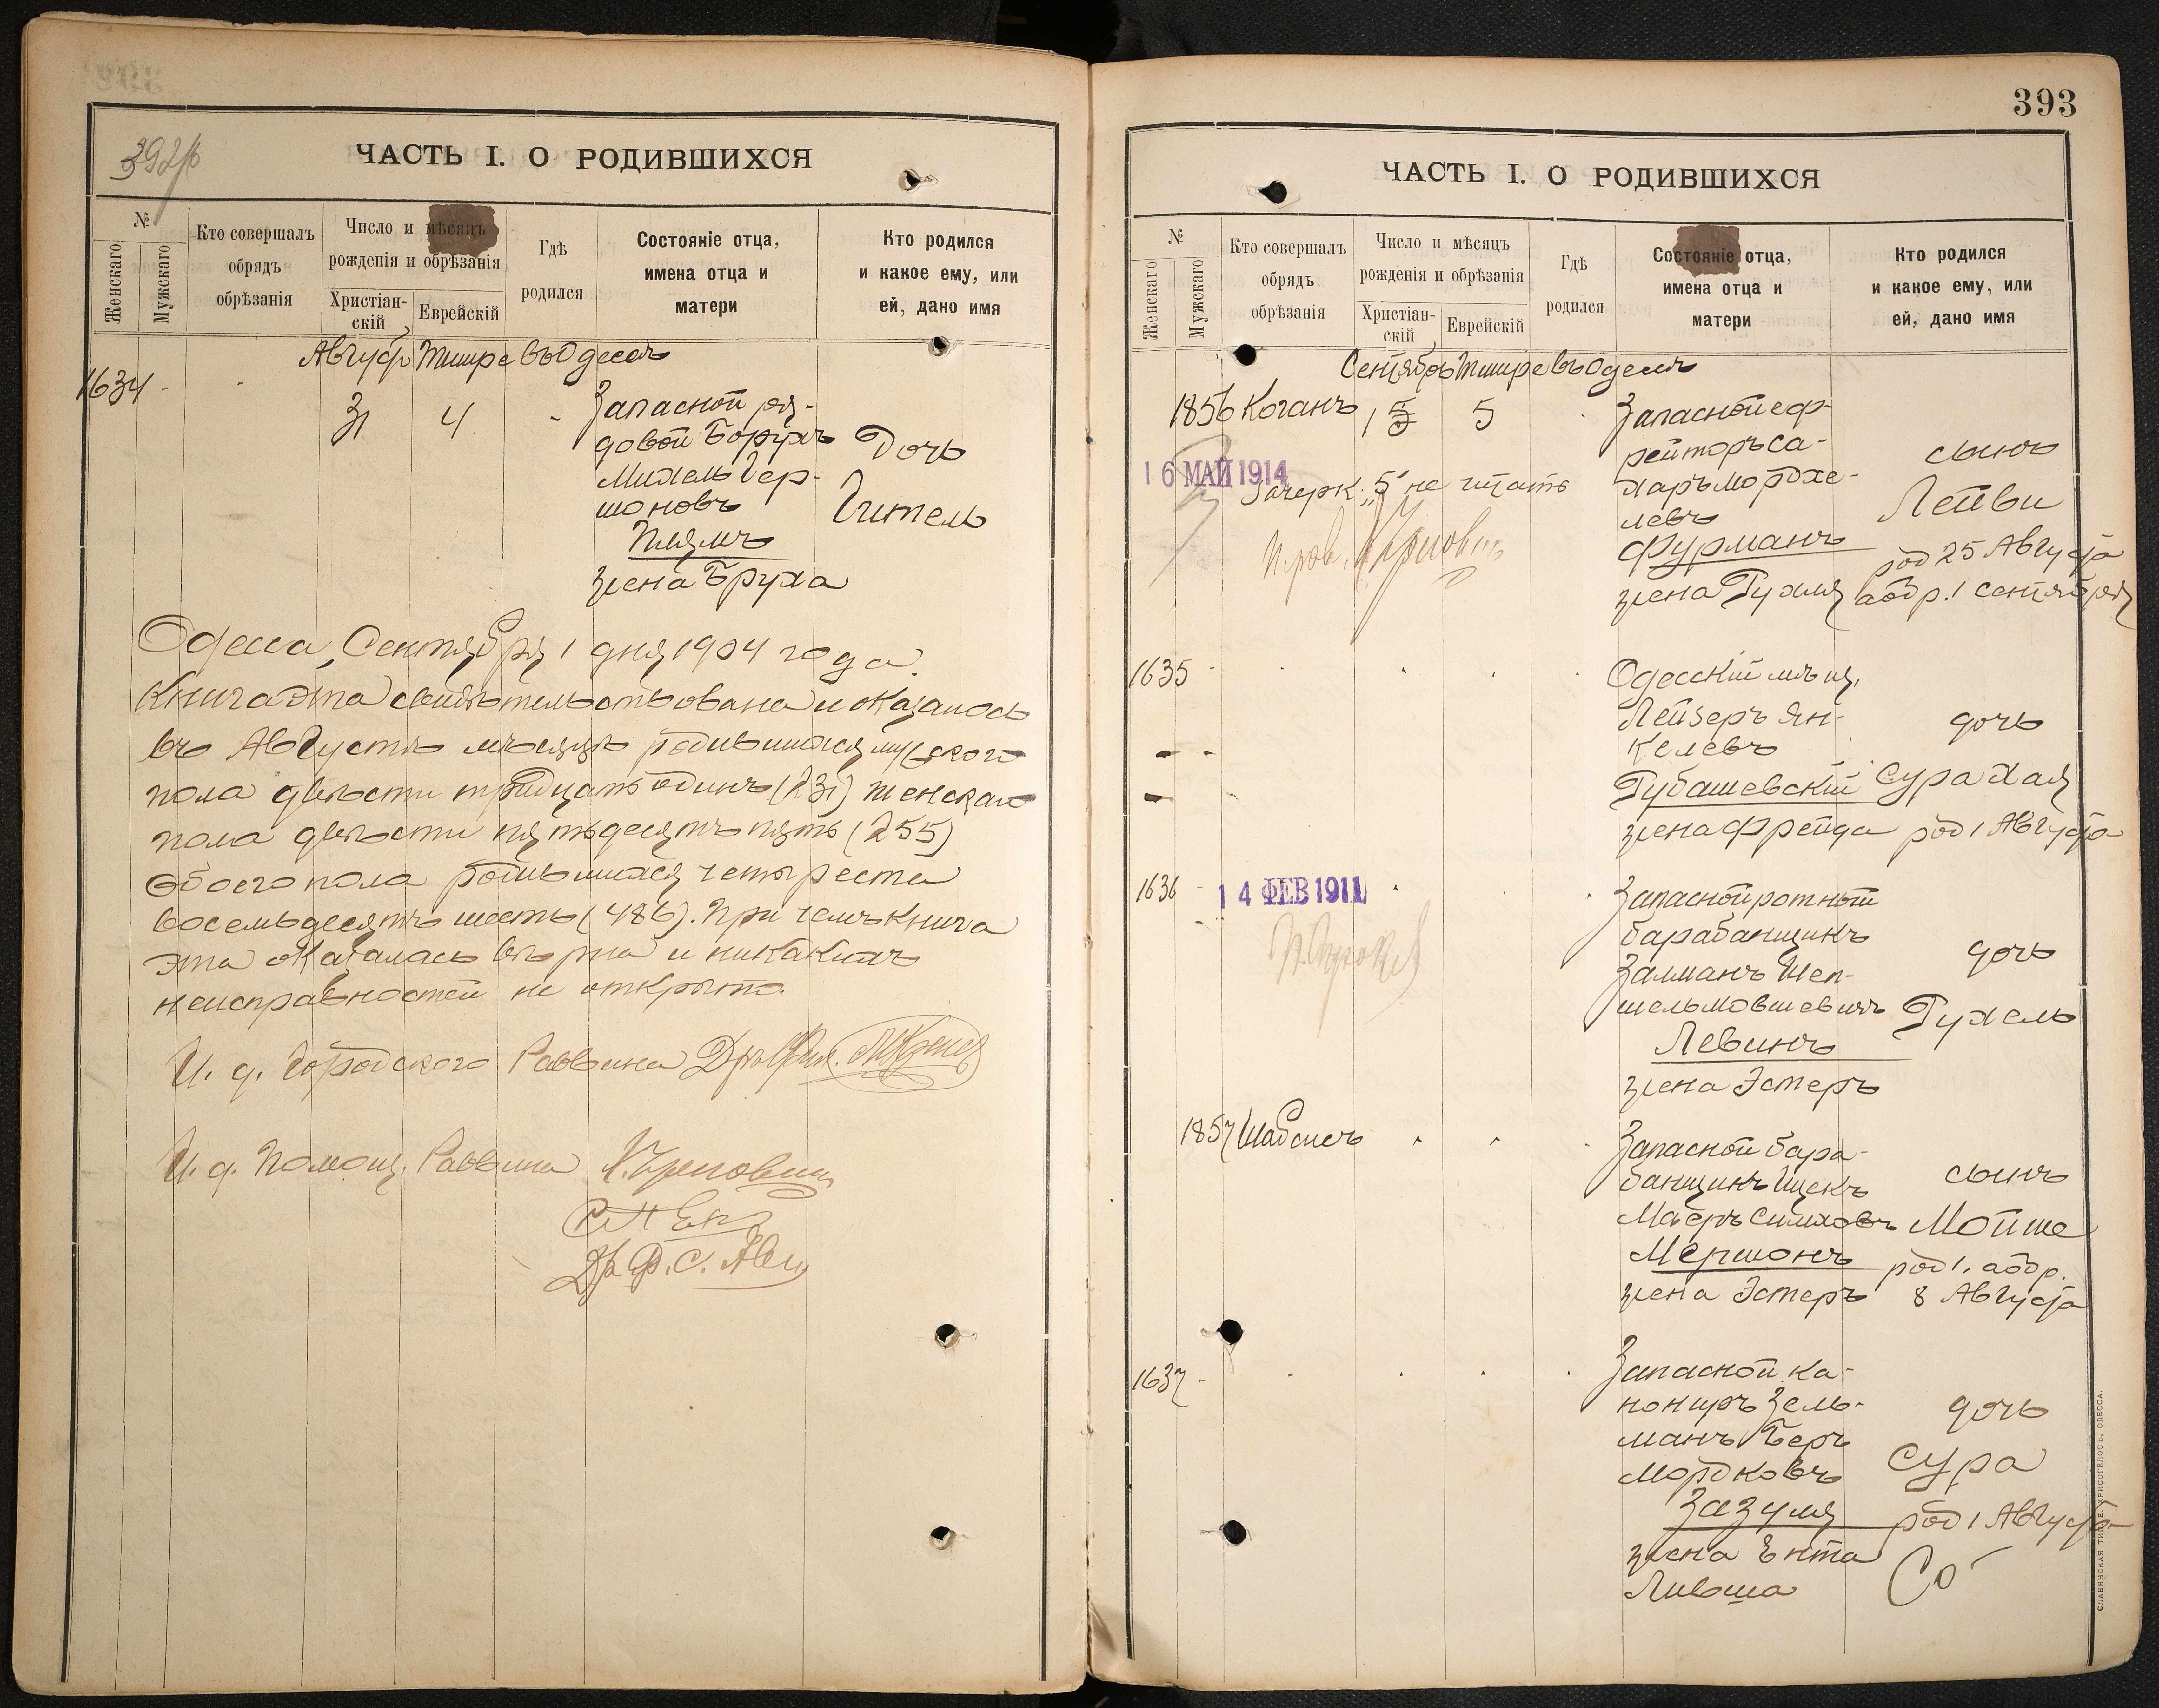 392 об
ЧАСТЬ I. О РОДИВШИХСЯ
№
Женскаго
Мужскаго
Кто совершалъ
обрядъ
обрѣзанія
Число и мѣсяцъ
рожденія и обрѣзанія
Христіан-
скій
Еврейскій
Гдѣ
родился
Состояніе отца,
имена отца и
матери
Кто родился
и какое ему, или
ей, дано имя
Август Тишре въ Одессѣ
1634
31 4
Запасной ря-
довой Борухъ
Михель Гер-
шоновъ
жена Бруха
Дочь
Гитель
Одесса, Сентября 1 дня 1904 года.
Книга эта свидѣтельствована и оказалось
въ Августѣ мѣсяцѣ родившихся мужского
пола двѣсти тридцать одинъ (231) женскаго
пола двѣсти пятьдесятъ пять (255)
обоего пола родившихся четыреста
восемьдесятъ шесть (486). При чемъ книга
эта оказалась вѣрна и никакихъ
неисправностей не открыто.
И. д. Городского Раввина Дръ Фил.
И. д. Помощ. Раввина
393
ЧАСТЬ I. О РОДИВШИХСЯ
№
Женскаго
Мужскаго
Кто совершалъ
обрядъ
обрѣзанія
Число и мѣсяцъ
рожденія и обрѣзанія
Христіан-
скій
Еврейскій
Гдѣ
родился
Состояніе отца,
имена отца и
матери
Кто родился
и какое ему, или
ей, дано имя
Сентябрь Тишре въ Одессѣ
1856 Коганъ 1 5 5
Запасной еф-
рейторъ Са-
харъ Мордхе-
левъ
Фурманъ
жена Рухля
сынъ
Лейви
род 25 Августа
обр. 1 сентября
16 МАЙ 1914
Зачерк. „5" не читать
1635
Одесскій мѣщ.
Лейзеръ Ян-
келевъ
Губашевскій
жена Фрейда
дочь
Сура Хая
род 1 Августа
1636
14 ФЕВ 1911
Запасной ротный
барабанщикъ
Залманъ Шеп-
шельмовшевичъ
Левинъ
жена Эстеръ
дочь
Рухель
1857 Шабсисъ
Запасной бара-
банщикъ Ицекъ
Маеръ Симховъ
Мершонъ
жена Эстеръ
сынъ
Мойше
род 1, обр.
8 Августа
1637
Запасной ка-
нониръ Зель-
манъ Беръ
Мордковъ
Зазуля
жена Ента
Ливша
дочь
Сура
род 1 Августа
СЛАВЯНСКАЯ ТИП. Е. ХРИСОГЕЛОСЪ, ОДЕССА.